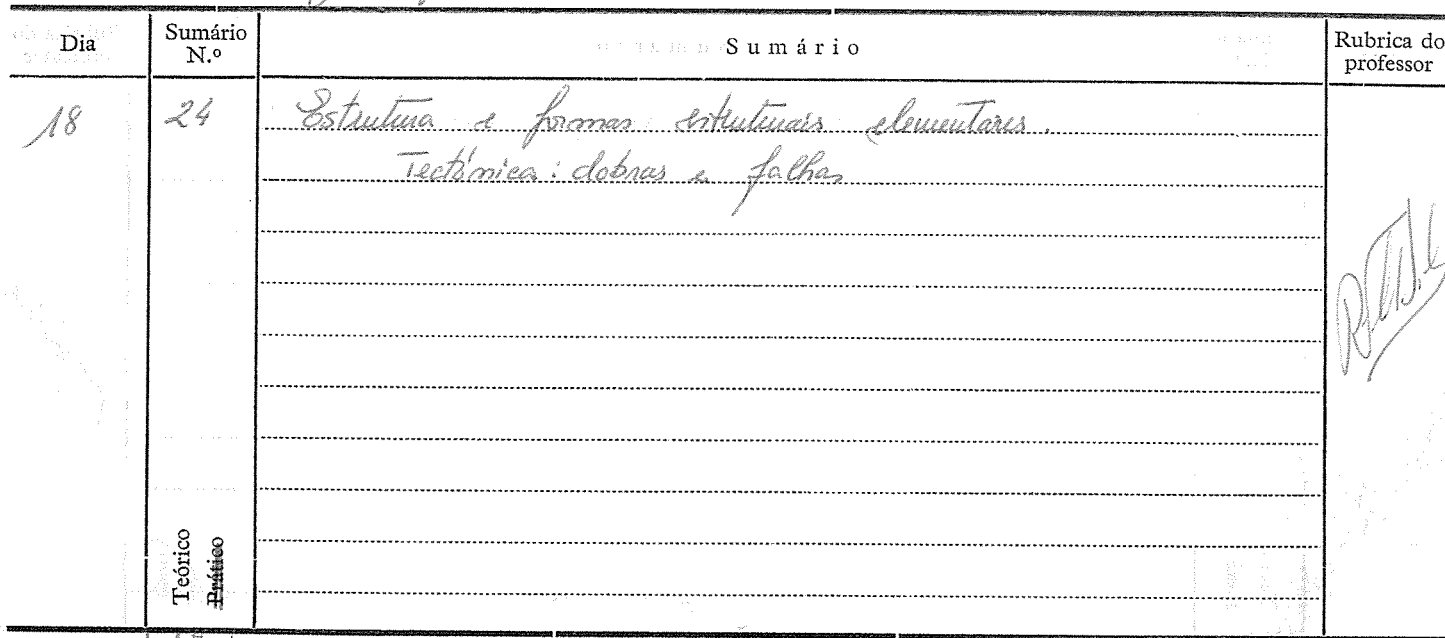 Dia Sumário N.º Sumário Rubrica do professor
18 24 Estrutura e formas estruturais elementares.
Tectónica: dobras e falhas
Teórico
Prático